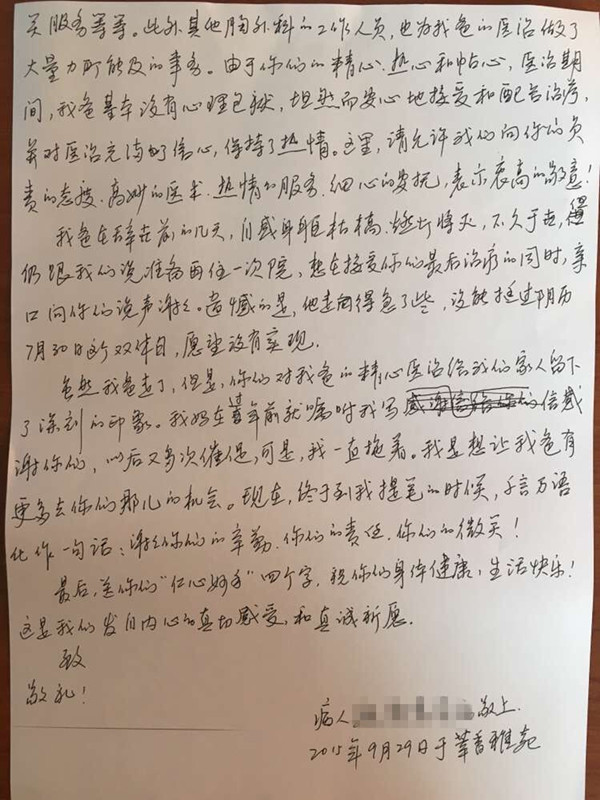 关服务等等。此外其他胸外科的工作人员，也为我爸的医治做了
大量力所能及的事务。由于你们的精心、热心和中心，医治期
间，我爸基本没有心理包袱，坦然而安心地接受和配合治疗，
并对医治充满了信心，保持了热情。这里，请允许我们向你们负
责的态度、高妙的医术、热情的服务、细心的安抚，表示衷高的敬意！
我爸在辞世前的几天，自感身躯枯槁、灯将灭，不久于世，
仍跟我们说准备再住一次院，想在接受你们最后治疗的同时，亲
口向你们说声谢谢。遗憾的是，他走得急了些，没能挺过阴历
7月30日这个双休日，愿望没有实现。
虽然我爸走了，但是，你们对我爸的精心医治给我们家人留下
了深刻的印象。我妈在年前就嘱咐我写信感
谢你们，以后又多次催促，可是，我一直拖着。我是想让我爸有
更多去你们那儿的机会。现在，终于到我提笔的时候，千言万语
化作一句话：谢谢你们的辛勤、你们的责任、你们的微笑！
最后，送你们“仁心妙手”四个字，祝你们身体健康，生活快乐！
这是我们发自内心的真切感受，和真诚祈愿。
致
敬礼！
病人 敬上
2015年9月29日于华香雅苑